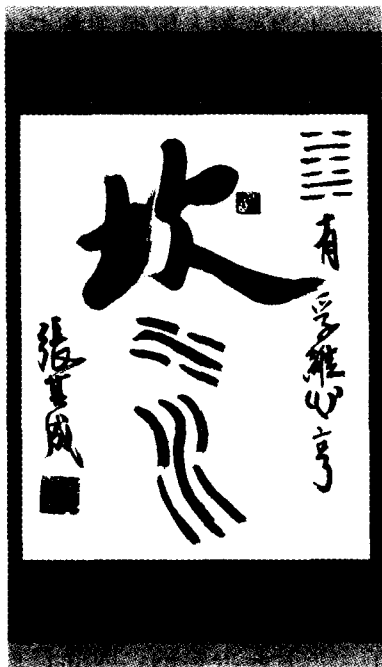 有孚維心亨
坎
張其成